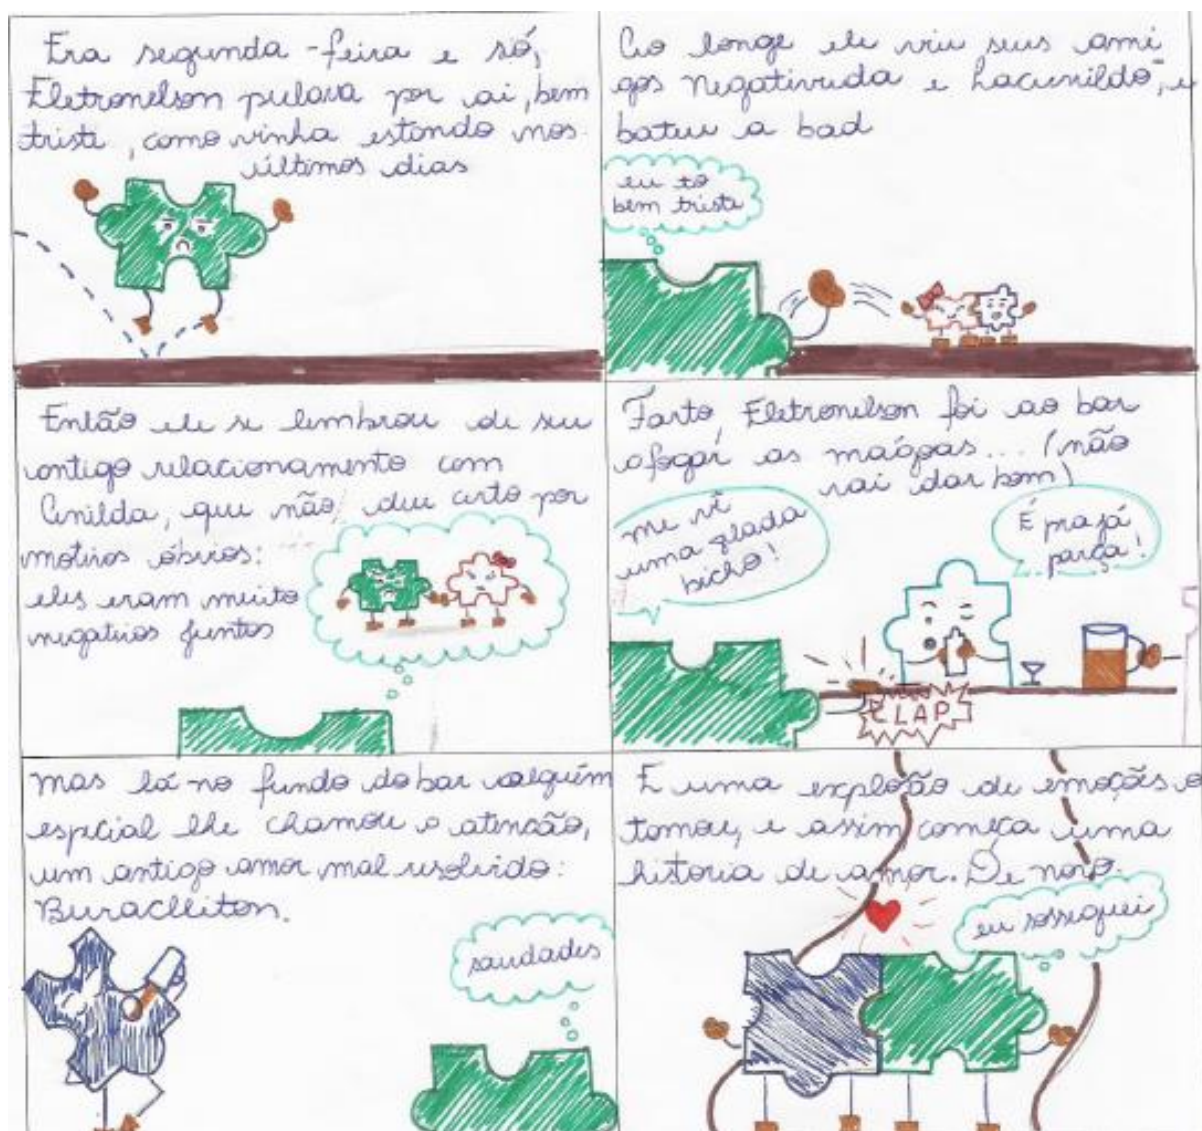 Era segunda-feira e só,
Eletronelson pulava por ai, bem
triste, como vinha estando nos
últimos dias
Ao longe ele viu seus ami
gos Negativuda e Lacunildo, e
bateu a bad
eu tô
bem triste
Então ele se lembrou de seu
antigo relacionamento com
Anilda, que não deu certo por
motivos óbvios:
eles eram muito
negativos juntos
Farto, Eletronelson foi ao bar
afogar as maógas... (não
vai dar bom)
me vê
uma glada
bicho!
É pra já
parça!
CLAP
mas lá no fundo do bar alguém
especial lhe chamou a atenção,
um antigo amor mal resolvido:
Buracleiton.
saudades
E uma explosão de emoções o
tomou, e assim começa uma
historia de amor. De novo.
eu sosseguei